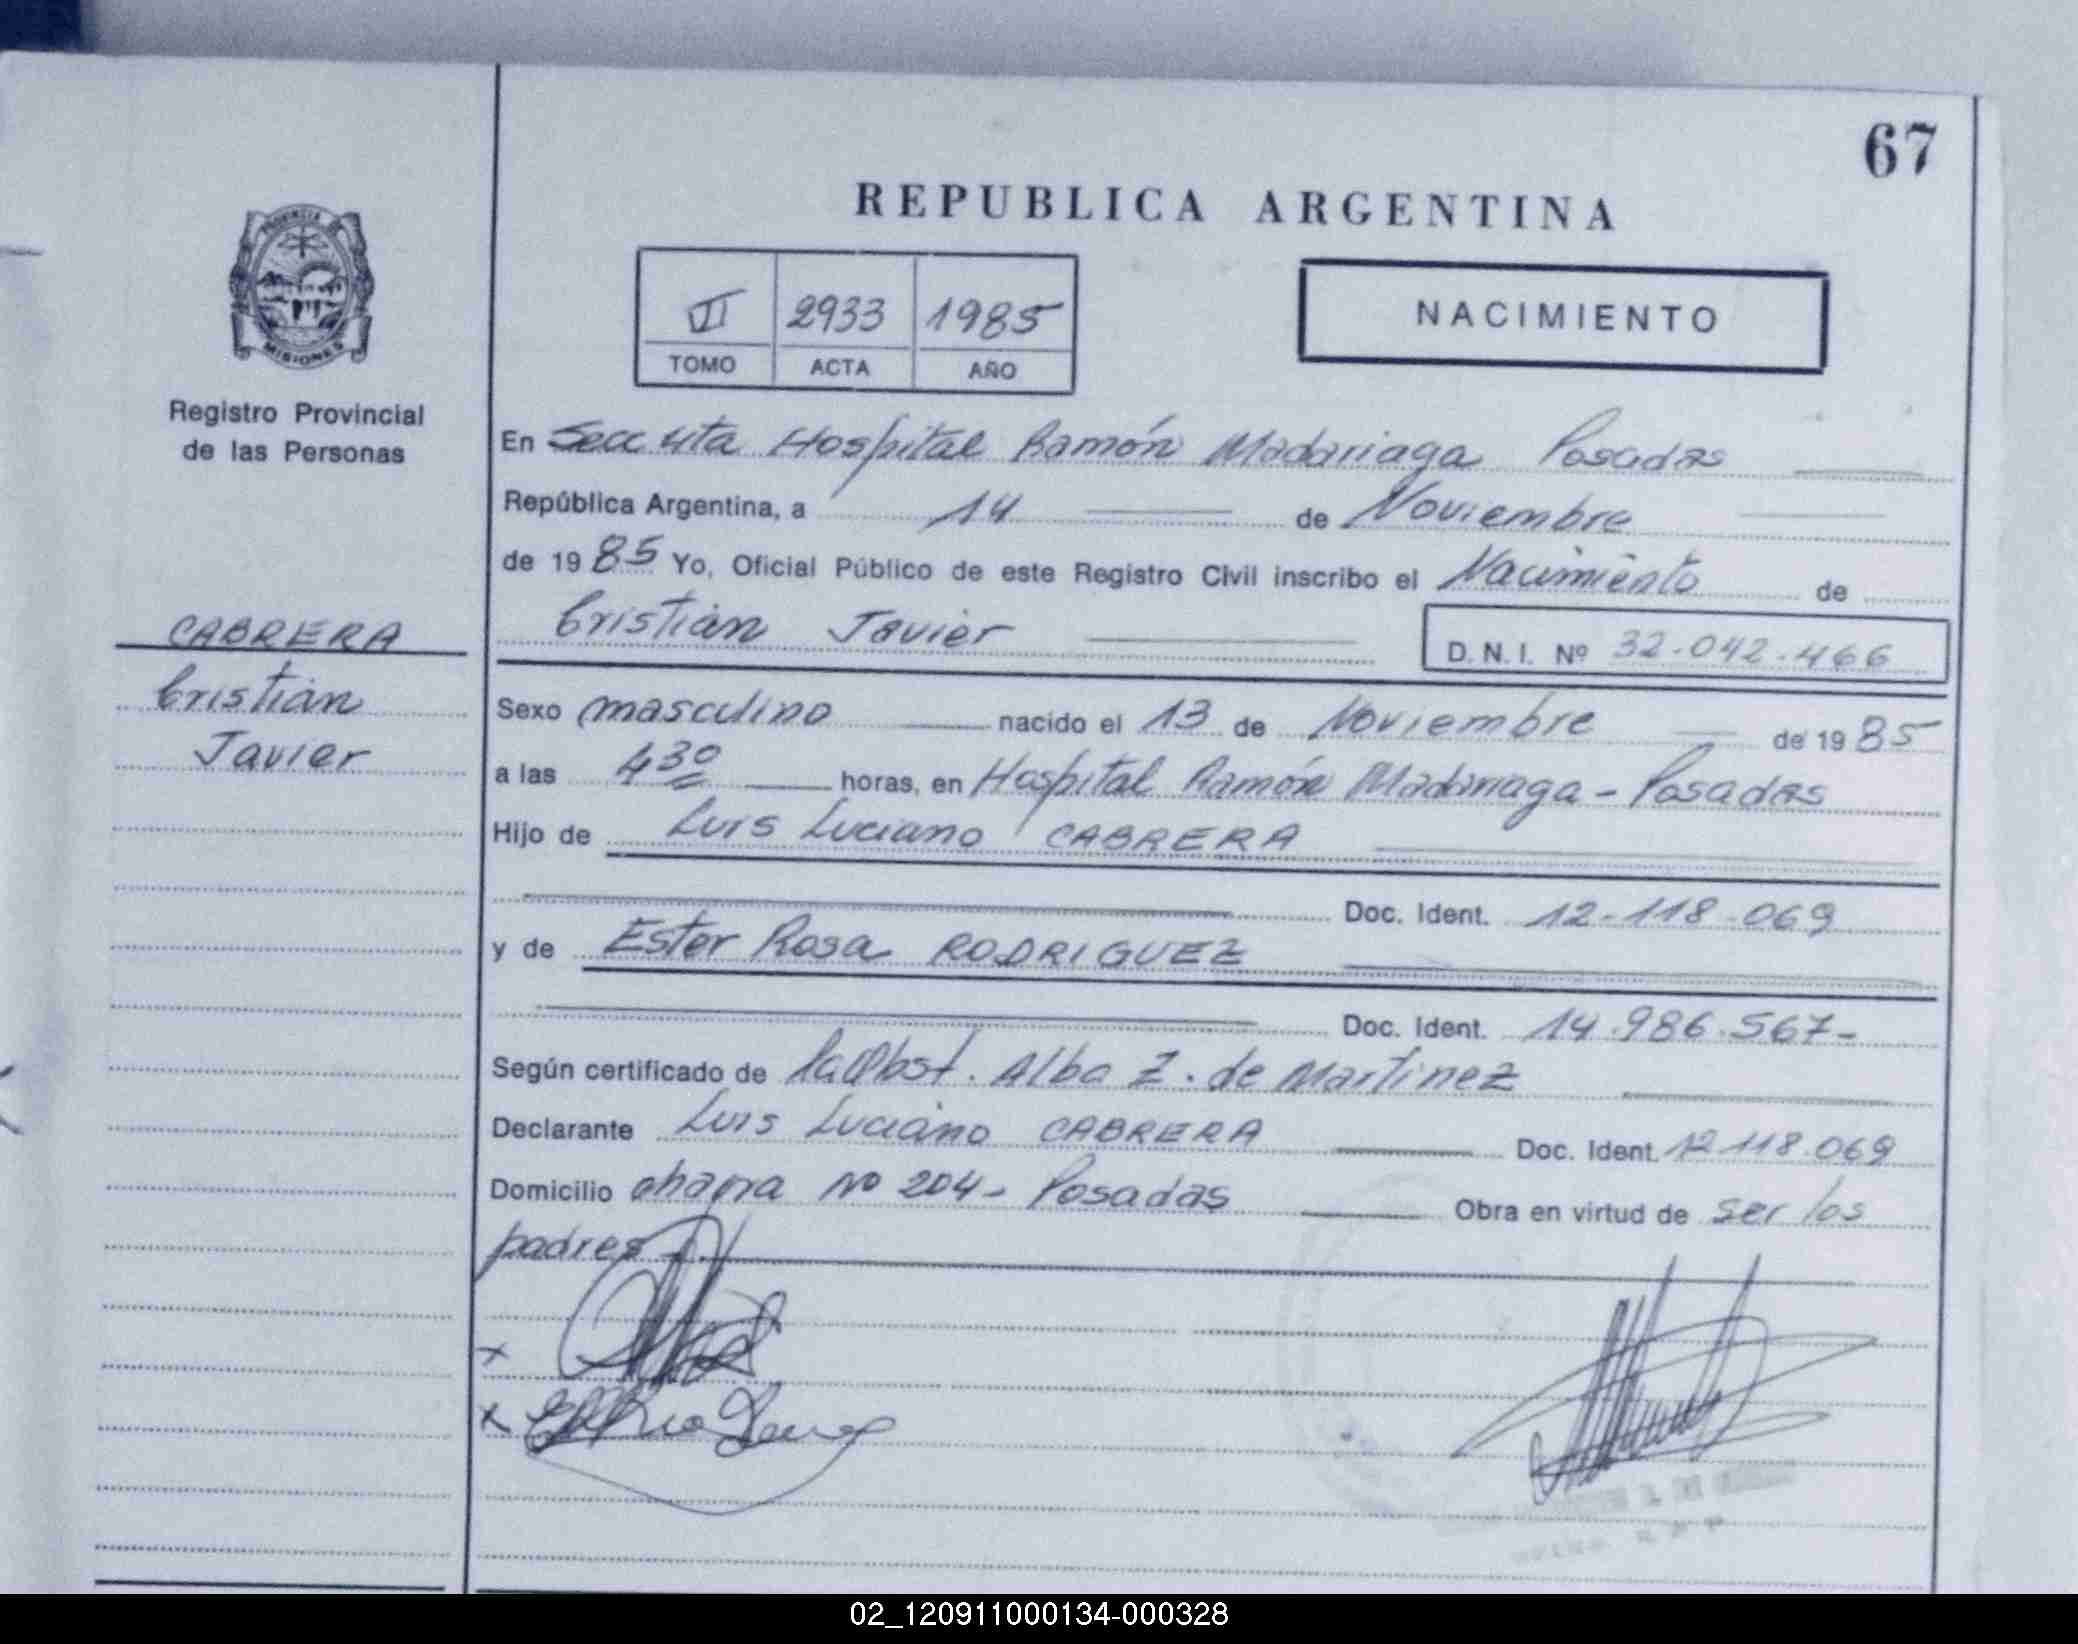 67
REPUBLICA ARGENTINA
PROVINCIA DE
MISIONES
VI 2933 1985
TOMO ACTA AÑO
NACIMIENTO
Registro Provincial
de las Personas
CABRERA
Cristian
Javier
En Secc 4ta Hospital Ramón Madariaga Posadas
República Argentina, a 14 de Noviembre
de 1985 Yo, Oficial Público de este Registro Civil inscribo el Nacimiento de
Cristian Javier D.N.I. Nº 32.042.466
Sexo masculino nacido el 13 de Noviembre de 1985
a las 4 30 horas, en Hospital Ramón Madariaga - Posadas
Hijo de Luis Luciano CABRERA
Doc. Ident. 12-118-069
y de Ester Rosa RODRIGUEZ
Doc. Ident. 14.986.567-
Según certificado de la Obst. Alba Z. de Martinez
Declarante Luis Luciano CABRERA Doc. Ident. 12.118.069
Domicilio chacra Nº 204- Posadas Obra en virtud de ser los
padres.
x
x
02_120911000134-000328